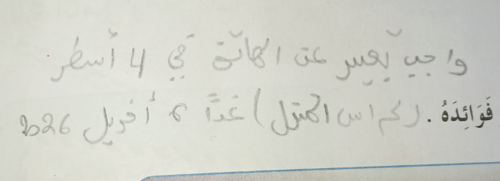 واجب تعبير عن الهاتف في 4 أسطر
فَوَائِدَهُ. (كراس المنزل) غدًا 6 أفريل 2026